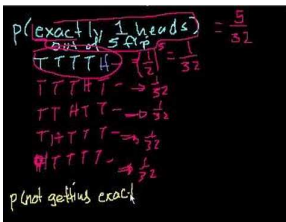 P(exactly 1 heads) = 5/32
out of 5 flip
TTTTH - = (1/2)^5 = 1/32
TTTHT - → 1/32
TTHTT - → 1/32
THTTT - ⇒ 1/32
HTTTT - ⇒ 1/32
P(not getting exact